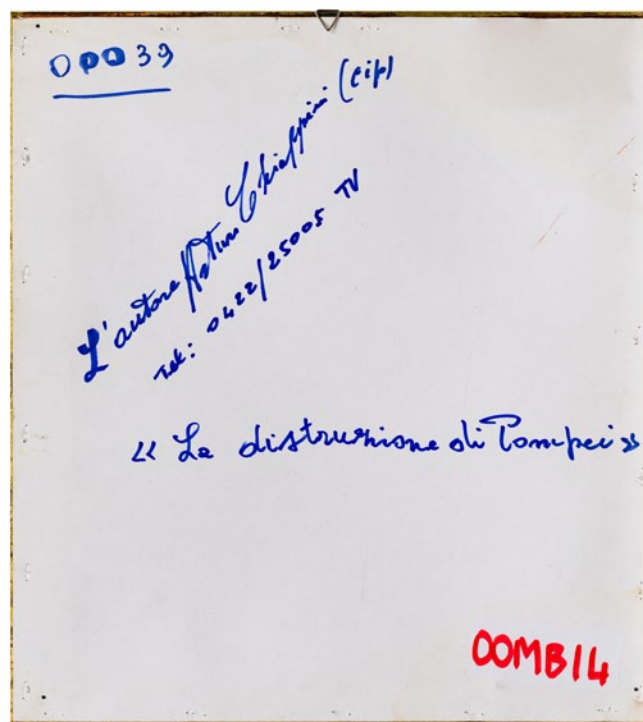 OPO 39
L'autore Arturo Chiappini (cip)
Tel: 0422/25005 TV
« La distruzione di Pompei »
OOMB14